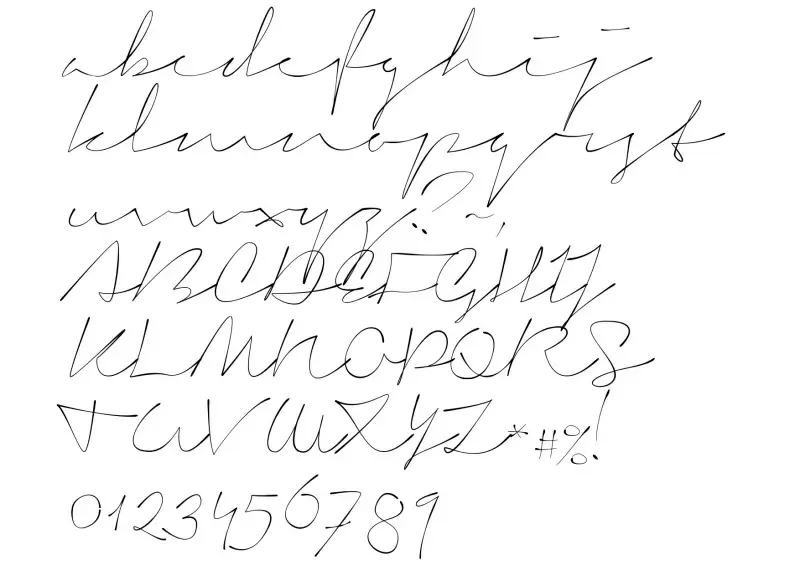 abcdefghij
klmnopqrst
uvwxyz..?~,
ABCDEFGHIJ
KLMNOPQRS
TUVWXYZ*#%!
0123456789